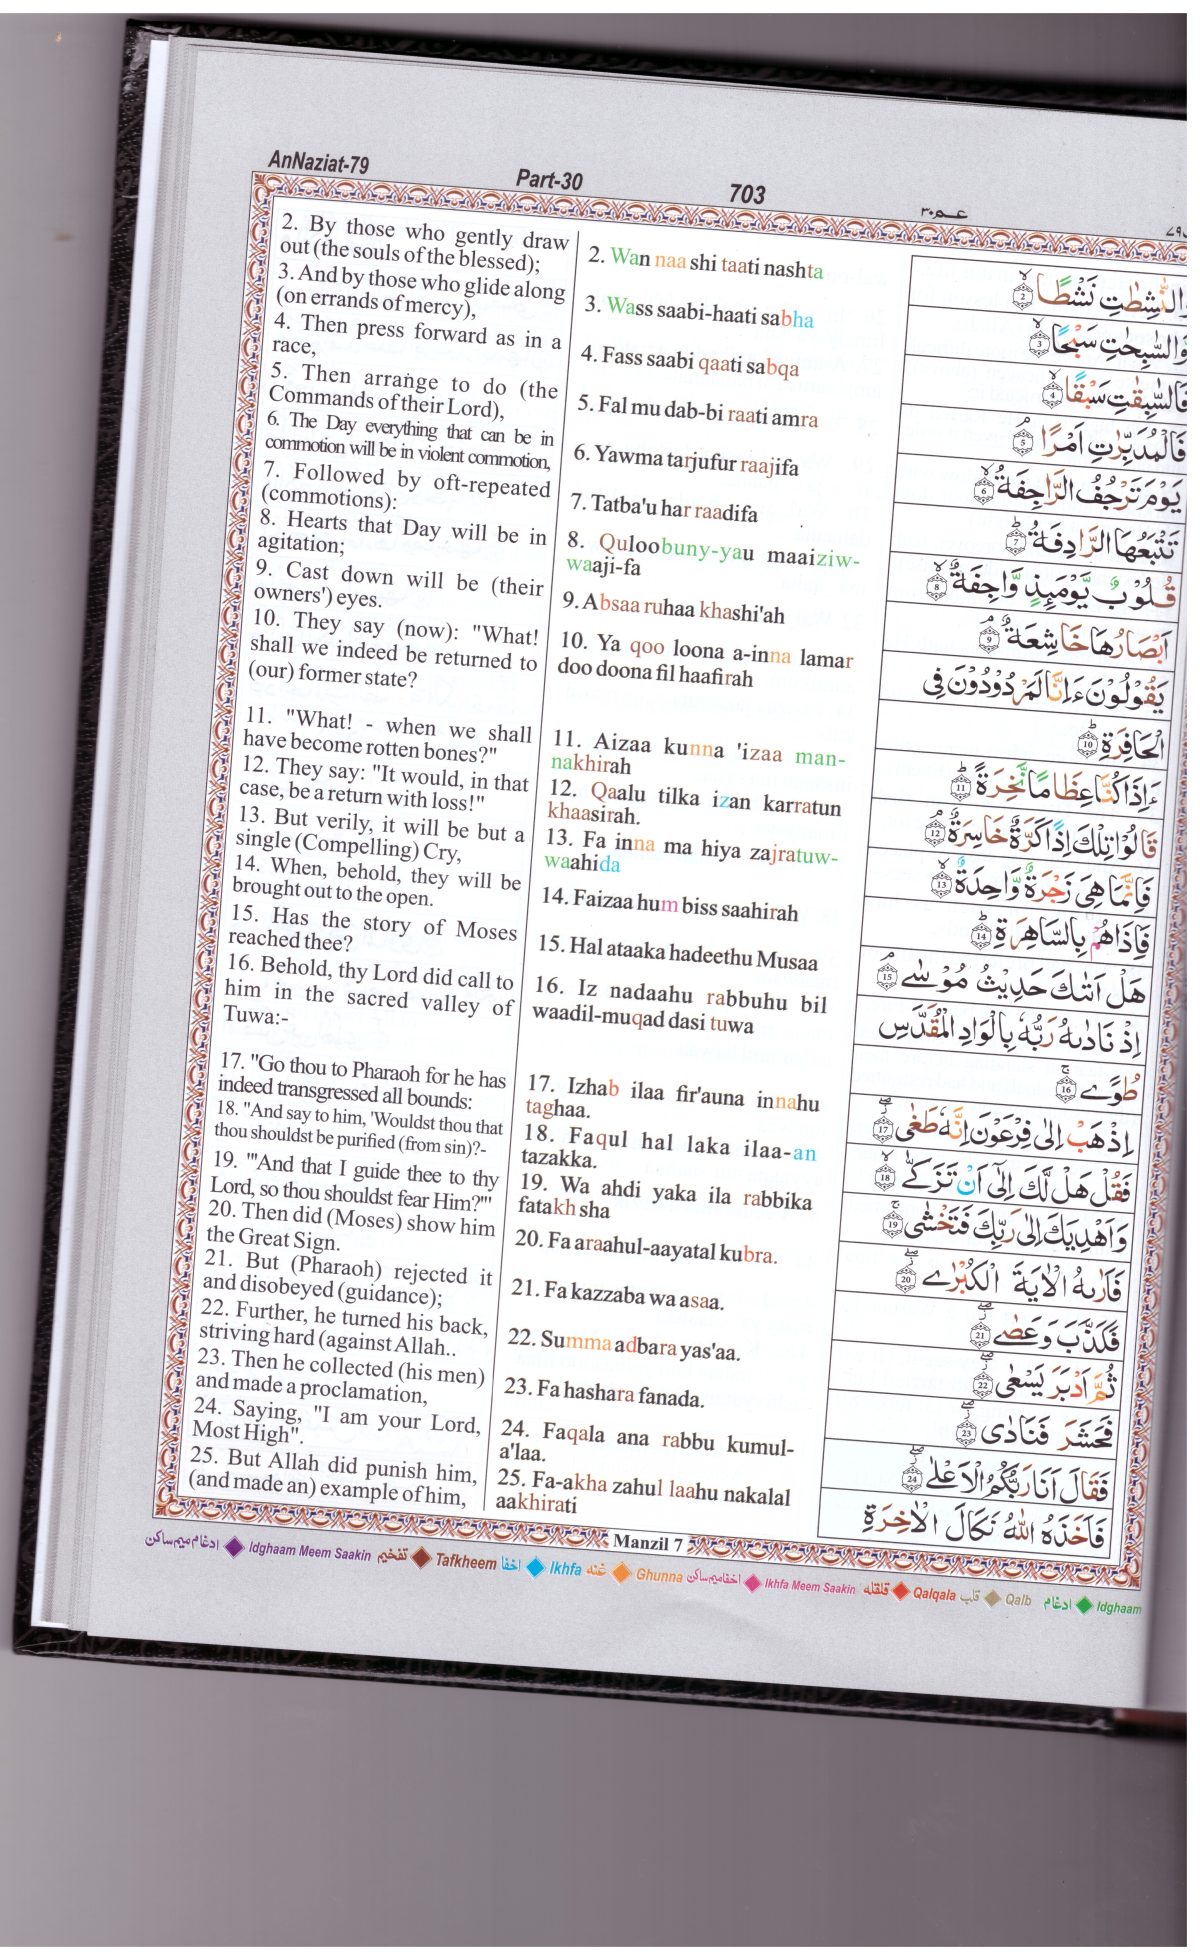 AnNaziat-79 Part-30 703 عـم٣٠
2. By those who gently draw
out (the souls of the blessed);
3. And by those who glide along
(on errands of mercy),
4. Then press forward as in a
race,
5. Then arrange to do (the
Commands of their Lord),
6. The Day everything that can be in
commotion will be in violent commotion,
7. Followed by oft-repeated
(commotions):
8. Hearts that Day will be in
agitation;
9. Cast down will be (their
owners') eyes.
10. They say (now): "What!
shall we indeed be returned to
(our) former state?
11. "What! - when we shall
have become rotten bones?"
12. They say: "It would, in that
case, be a return with loss!"
13. But verily, it will be but a
single (Compelling) Cry,
14. When, behold, they will be
brought out to the open.
15. Has the story of Moses
reached thee?
16. Behold, thy Lord did call to
him in the sacred valley of
Tuwa:-
17. "Go thou to Pharaoh for he has
indeed transgressed all bounds:
18. "And say to him, 'Wouldst thou that
thou shouldst be purified (from sin)?-
19. "'And that I guide thee to thy
Lord, so thou shouldst fear Him?'"
20. Then did (Moses) show him
the Great Sign.
21. But (Pharaoh) rejected it
and disobeyed (guidance);
22. Further, he turned his back,
striving hard (against Allah..
23. Then he collected (his men)
and made a proclamation,
24. Saying, "I am your Lord,
Most High".
25. But Allah did punish him,
(and made an) example of him,
2. Wan naa shi taati nashta
3. Wass saabi-haati sabha
4. Fass saabi qaati sabqa
5. Fal mu dab-bi raati amra
6. Yawma tarjufur raajifa
7. Tatba'u har raadifa
8. Quloobuny-yau maaiziw-
waaji-fa
9. Absaa ruhaa khashi'ah
10. Ya qoo loona a-inna lamar
doo doona fil haafirah
11. Aizaa kunna 'izaa man-
nakhirah
12. Qaalu tilka izan karratun
khaasirah.
13. Fa inna ma hiya zajratuw-
waahida
14. Faizaa hum biss saahirah
15. Hal ataaka hadeethu Musaa
16. Iz nadaahu rabbuhu bil
waadil-muqad dasi tuwa
17. Izhab ilaa fir'auna innahu
taghaa.
18. Faqul hal laka ilaa-an
tazakka.
19. Wa ahdi yaka ila rabbika
fatakh sha
20. Fa araahul-aayatal kubra.
21. Fa kazzaba wa asaa.
22. Summa adbara yas'aa.
23. Fa hashara fanada.
24. Faqala ana rabbu kumul-
a'laa.
25. Fa-akha zahul laahu nakalal
aakhirati
وَالنّٰشِطٰتِ نَشْطًا ۙ2
وَالسّٰبِحٰتِ سَبْحًا ۙ3
فَالسّٰبِقٰتِ سَبْقًا ۙ4
فَالْمُدَبِّرٰتِ اَمْرًا ۘ5
يَوْمَ تَرْجُفُ الرَّاجِفَةُ ۙ6
تَتْبَعُهَا الرَّادِفَةُ ؕ7
قُلُوْبٌ يَّوْمَئِذٍ وَّاجِفَةٌ ۙ8
اَبْصَارُهَا خَاشِعَةٌ ۘ9
يَقُوْلُوْنَ ءَاِنَّا لَمَرْدُوْدُوْنَ فِى
الْحَافِرَةِ ؕ10
ءَاِذَا كُنَّا عِظَامًا نَّخِرَةً ؕ11
قَالُوْا تِلْكَ اِذًا كَرَّةٌ خَاسِرَةٌ ۘ12
فَاِنَّمَا هِىَ زَجْرَةٌ وَّاحِدَةٌ ۙ13
فَاِذَا هُمْ بِالسَّاهِرَةِ ؕ14
هَلْ اَتٰىكَ حَدِيْثُ مُوْسٰى ۘ15
اِذْ نَادٰىهُ رَبُّهٗ بِالْوَادِ الْمُقَدَّسِ
طُوًى ۚ16
اِذْهَبْ اِلٰى فِرْعَوْنَ اِنَّهٗ طَغٰى ۖ17
فَقُلْ هَلْ لَّكَ اِلٰٓى اَنْ تَزَكّٰى ۙ18
وَاَهْدِيَكَ اِلٰى رَبِّكَ فَتَخْشٰى ۚ19
فَاَرٰىهُ الْاٰيَةَ الْكُبْرٰى ۖ20
فَكَذَّبَ وَعَصٰى ۖ21
ثُمَّ اَدْبَرَ يَسْعٰى ۖ22
فَحَشَرَ فَنَادٰى ۖ23
فَقَالَ اَنَا رَبُّكُمُ الْاَعْلٰى ۖ24
فَاَخَذَهُ اللّٰهُ نَكَالَ الْاٰخِرَةِ
Manzil 7
ادغام میم ساکن Idghaam Meem Saakin تفخیم Tafkheem اخفا Ikhfa غنه Ghunna اخفا میم ساکن Ikhfa Meem Saakin قلقله Qalqala قلب Qalb ادغام Idghaam